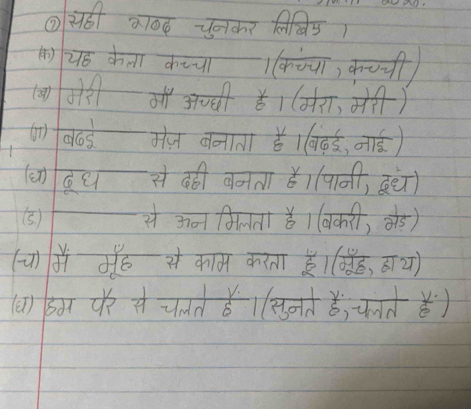 ① सही शब्द चुनकर लिखिए ।
(क) यह केला कच्चा ______ । (कच्चा, कच्ची)
(ख) मेरी ______ माँ अच्छी है । (मेरा, मेरी)
(ग) बढई ______ मेज़ बनाता है । (बढई, नाई)
(घ) दूध ______ से दही बनता है । (पानी, दूध)
(ड) ______ से ऊन मिलता है । (बकरी, भेड)
(च) मैं ______ मूँह ______ से काम करता हूँ । (मूँह, हाथ)
(छ) हम पैर से चलते हैं । (सुनते हैं, चलते हैं)